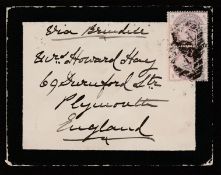 via Brindisi
Mrs Howard Hay
69 Durnford Str.
Plymouth
England